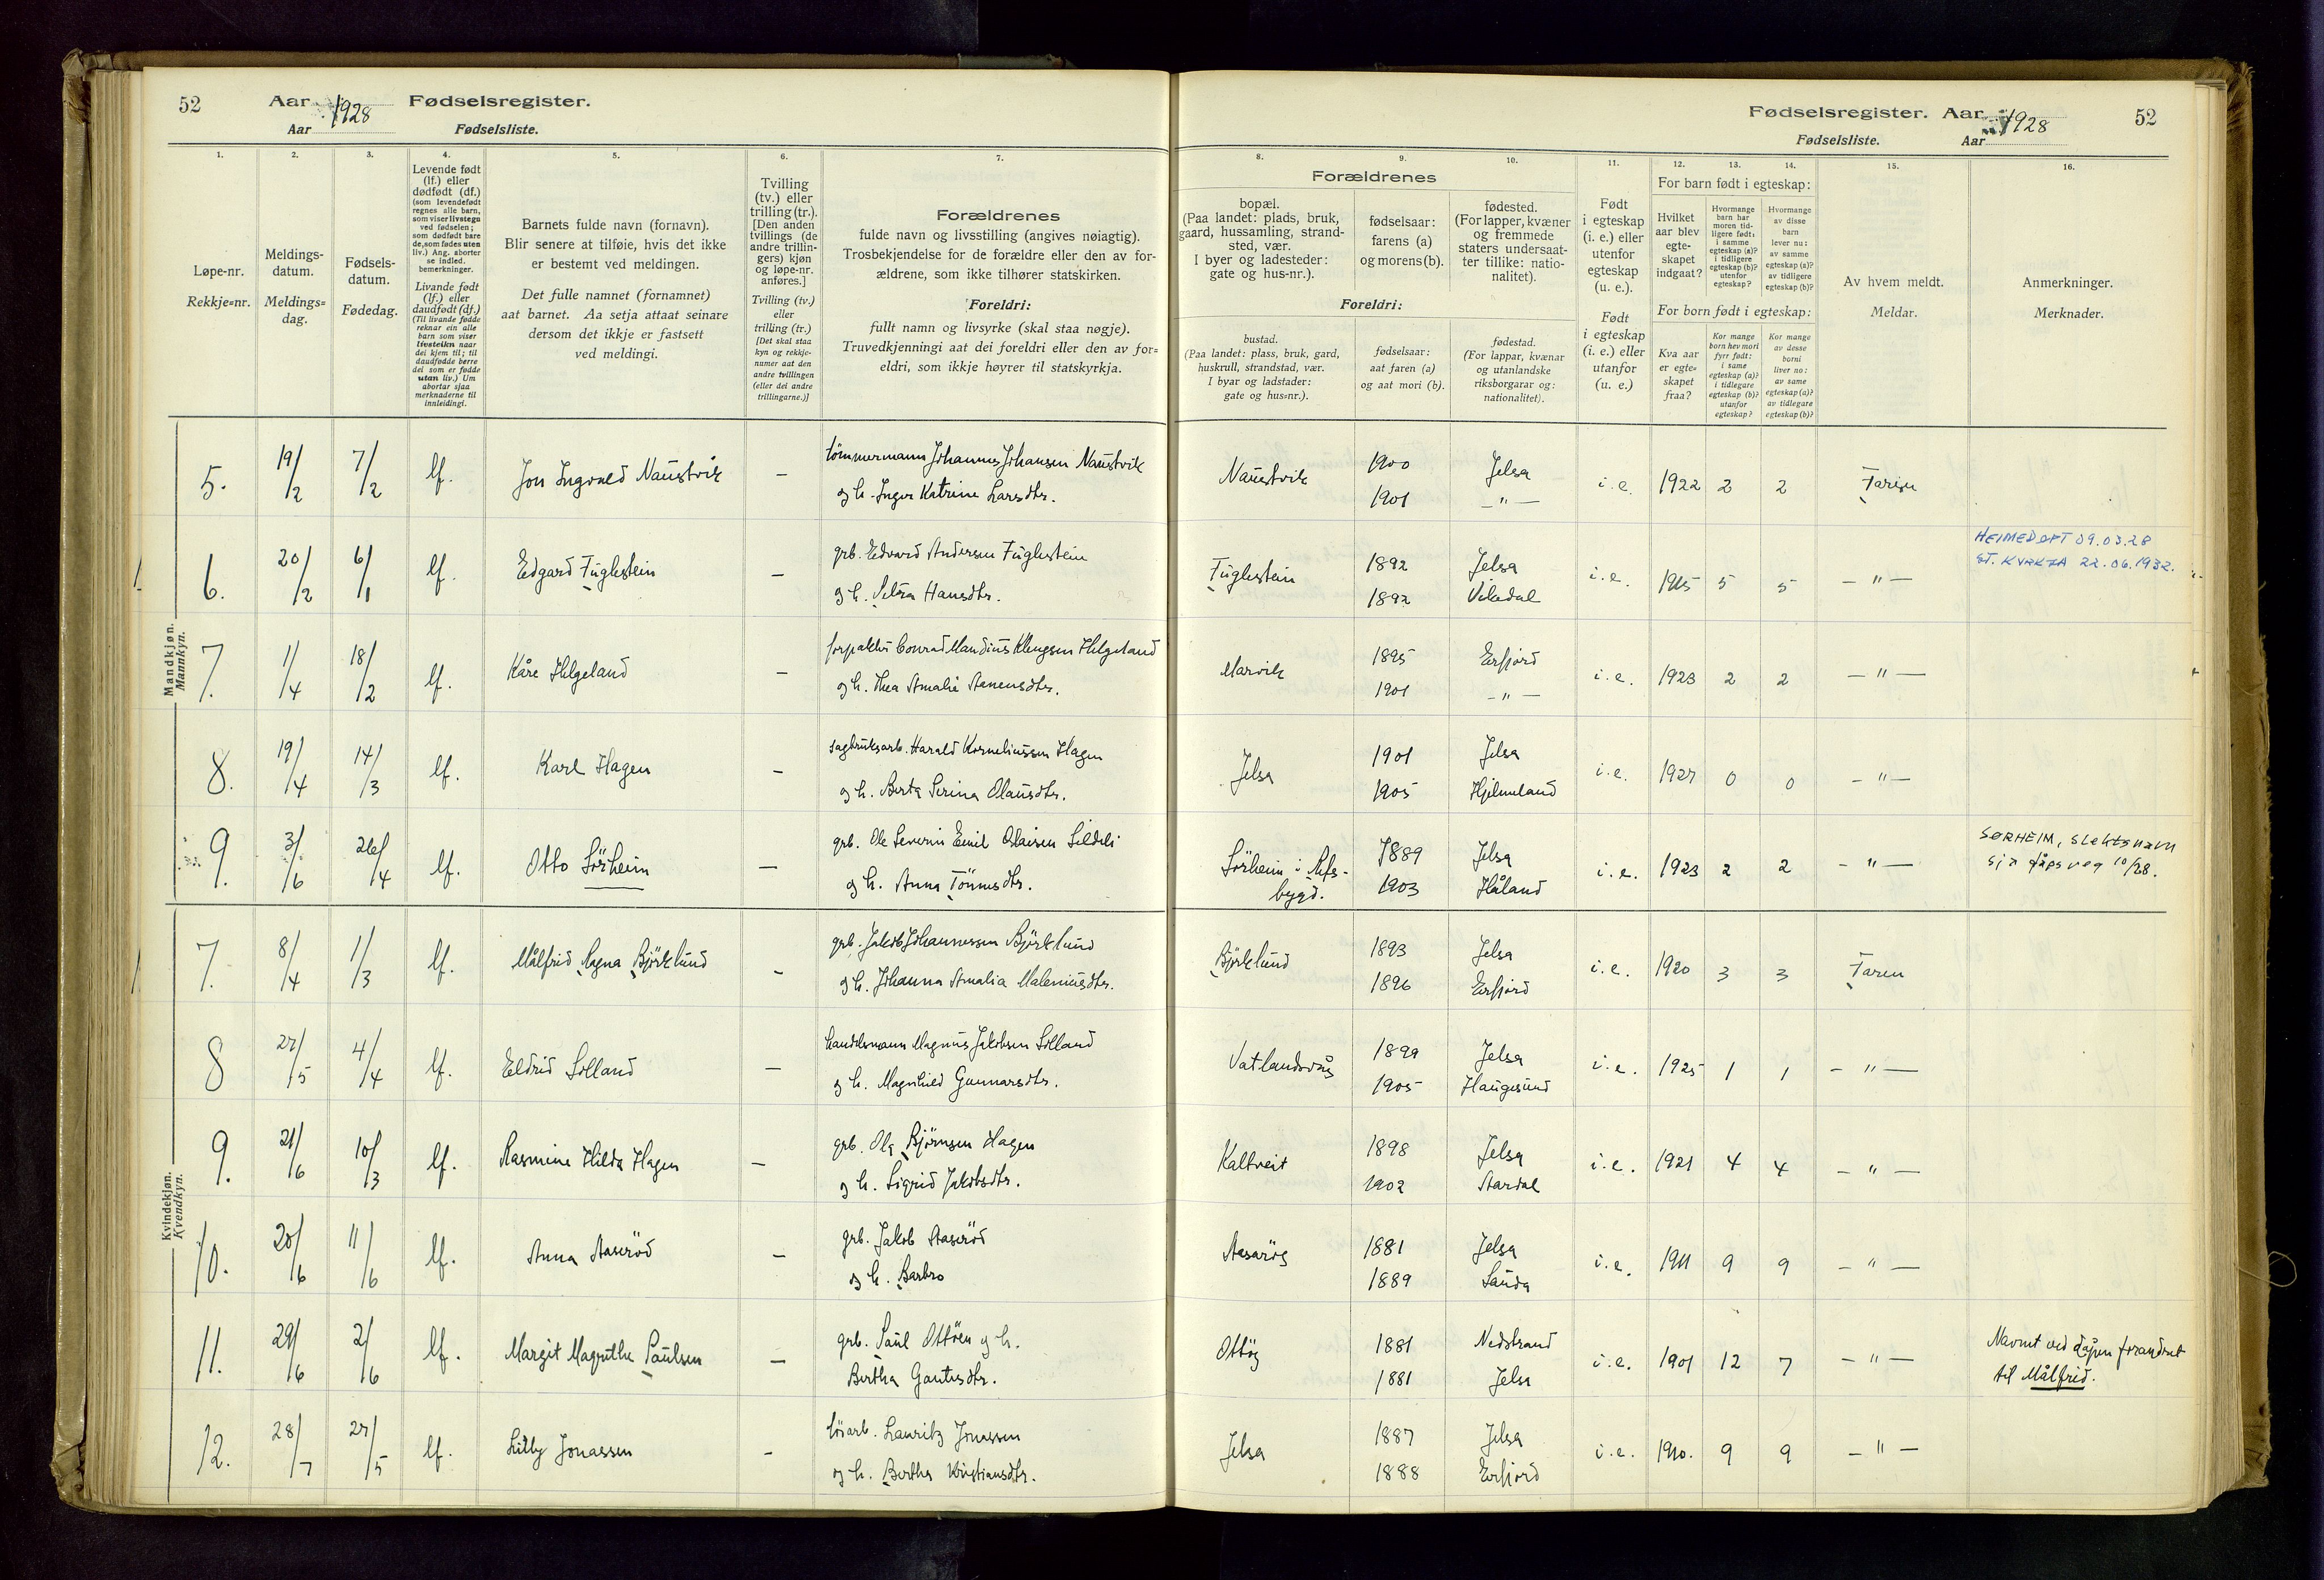 52 Aar 1928 Fødselsregister.
Aar Fødselsliste.
Fødselsregister. Aar 1928 52
Fødselsliste. Aar
1. 2. 3. 4. 5. 6. 7. 8. 9. 10. 11. 12. 13. 14. 15. 16.
Løpe-nr.
Rekkje-nr.
Meldings-
datum.
Meldings-
dag.
Fødsels-
datum.
Fødedag.
Levende født
(lf.) eller
dødfødt (df.)
(som levendefødt
regnes alle barn,
som viser livstegn
ved fødselen;
som dødfødt bare
de, som fødes uten
liv.) Ang. aborter
se indled.
bemerkninger.
Livande født
(lf.) eller
daudfødt (df.)
(Til livande fødde
reknar ein alle
barn som viser
livsteikn naar
dei kjem til; til
daudfødde berre
dei som er fødde
utan liv.) Um
abortar sjaa
merknaderne til
innleidingi.
Barnets fulde navn (fornavn).
Blir senere at tilføie, hvis det ikke
er bestemt ved meldingen.
Det fulle namnet (fornamnet)
aat barnet. Aa setja attaat seinare
dersom det ikkje er fastsett
ved meldingi.
Tvilling
(tv.) eller
trilling (tr.).
[Den anden
tvillings (de
andre trillin-
gers) kjøn
og løpe-nr.
anføres.]
Tvilling (tv.)
eller
trilling (tr.)
[Det skal staa
kyn og rekkje-
numer aat den
andre tvillingen
(eller dei andre
trillingarne.)]
Forældrenes
fulde navn og livsstilling (angives nøiagtig).
Trosbekjendelse for de forældre eller den av for-
ældrene, som ikke tilhører statskirken.
Foreldri:
fullt namn og livsyrke (skal staa nøgje).
Truvedkjenningi aat dei foreldri eller den av for-
eldri, som ikkje høyrer til statskyrkja.
Forældrenes
bopæl.
(Paa landet: plads, bruk,
gaard, hussamling, strand-
sted, vær.
I byer og ladesteder:
gate og hus-nr.).
fødselsaar:
farens (a)
og morens (b).
fødested.
(For lapper, kvæner
og fremmede
staters undersaat-
ter tillike: natio-
nalitet).
Foreldri:
bustad.
(Paa landet: plass, bruk, gard,
huskrull, strandstad, vær.
I byar og ladstader:
gate og hus-nr.).
fødselsaar:
aat faren (a)
og aat mori (b).
fødestad.
(For lappar, kvænar
og utanlandske
riksborgarar og:
nationalitet).
Født
i egteskap
(i. e.) eller
utenfor
egteskap
(u. e.).
Født
i egteskap
(i. e.) eller
utanfor
(u. e.)
For barn født i egteskap:
Hvilket
aar blev
egte-
skapet
indgaat?
Hvormange
barn har
moren tid-
ligere født:
i samme
egteskap (a)?
i tidligere
egteskap (b)?
utenfor
egteskap?
Hvormange
av disse
barn
lever nu:
av samme
egteskap (a)?
av tidligere
egteskap (b)?
For born født i egteskap:
Kva aar
er egte-
skapet
fraa?
Kor mange
born hev mori
fyrr født:
i same
egteskap (a)?
i tidlegare
egteskap (b)?
utanfor
egteskap?
Kor mange
av desse
borni
liver no:
av same
egteskap (a)?
av tidlegare
egteskap (b)?
Av hvem meldt.
Meldar.
Anmerkninger.
Merknader.
Mandkjøn.
Mannkyn.
5. 19/2 7/2 lf. Jon Ingvald Naustvik – tömmermann Johannes Johansen Naustvik
og h. Inger Katrine Larsdtr.
Naustvik 1900 Jelsa i.e. 1922 2 2 Faren
1901 – " –
6. 20/2 6/1 lf. Edgard Fuglestein – grb. Edvard Andersen Fuglestein
og h. Hansdtr.
Fuglestein 1892 Jelsa i.e. 1915 5 5 – " –
1892 Vikedal
HEIMEDØPT 09.03.28
ST. KYRKJA 22.06.1932.
7. 1/4 18/2 lf. Kåre Helgeland – forpakter Conrad Mandius Helgeland
og h. Thea Amalie
Marvik 1895 Erfjord i.e. 1923 2 2 – " –
1901 – " –
8. 19/4 14/3 lf. Karl Hagen – sagbruksarb. Harald Korneliussen Hagen
og h. Berta Serina Olausdtr.
Jelsa 1901 Jelsa i.e. 1927 0 0 – " –
1905 Hjelmeland
9. 3/6 26/4 lf. Otto Sörheim – grb. Ole Severin Emil
og h. Anna Tönnesdtr.
Sörheim i
bygd.
1889 Jelsa i.e. 1923 2 2 – " –
1903 Håland
SØRHEIM, slektsnavn
sjå dåps reg 10/28.
Kvindekjøn.
Kvendkyn.
7. 8/4 1/3 lf. Målfrid Magna Björklund – grb. Jakob Johannessen Björklund
og h. Johanna Amalia Maleniusdtr.
Björklund 1893 Jelsa i.e. 1920 3 3 Faren
1896 Erfjord
8 27/5 4/4 lf. Eldrid Solland – handelsmann Magnus Jakobsen Solland
og h. Magnhild Gunnarsdtr.
Vatlandsvåg 1899 Jelsa i.e. 1925 1 1 – " –
1905 Haugesund
9. 21/6 10/3 lf. Rasmine Hilda Hagen – grb. Ola Björnsen Hagen
og h. Sigrid Jakobsdtr.
Kaltveit 1898 Jelsa i.e. 1921 4 4 – " –
1902 Aardal
10. 20/6 11/6 lf. Anna Aaseröd – grb. Jakob Aaseröd
og h. Barbro
1881 Jelsa i.e. 1911 9 9 – " –
1889 Sauda
11. 29/6 2/6 lf. Margit Magnthe Paulsen – grb. Paul Ottöen og h.
Bertha Gautesdtr.
Ottöy 1881 Nedstrand i.e. 1901 12 7 – " –
1881 Jelsa
Navnet ved dåpen forandret
til Målfrid.
12. 28/7 27/5 lf. Lilly Jonassen – Lauritz Jonassen
og h. Bertha Kristiansdtr.
Jelsa 1887 Jelsa i.e. 1910. 9 9 – " –
1888 Erfjord